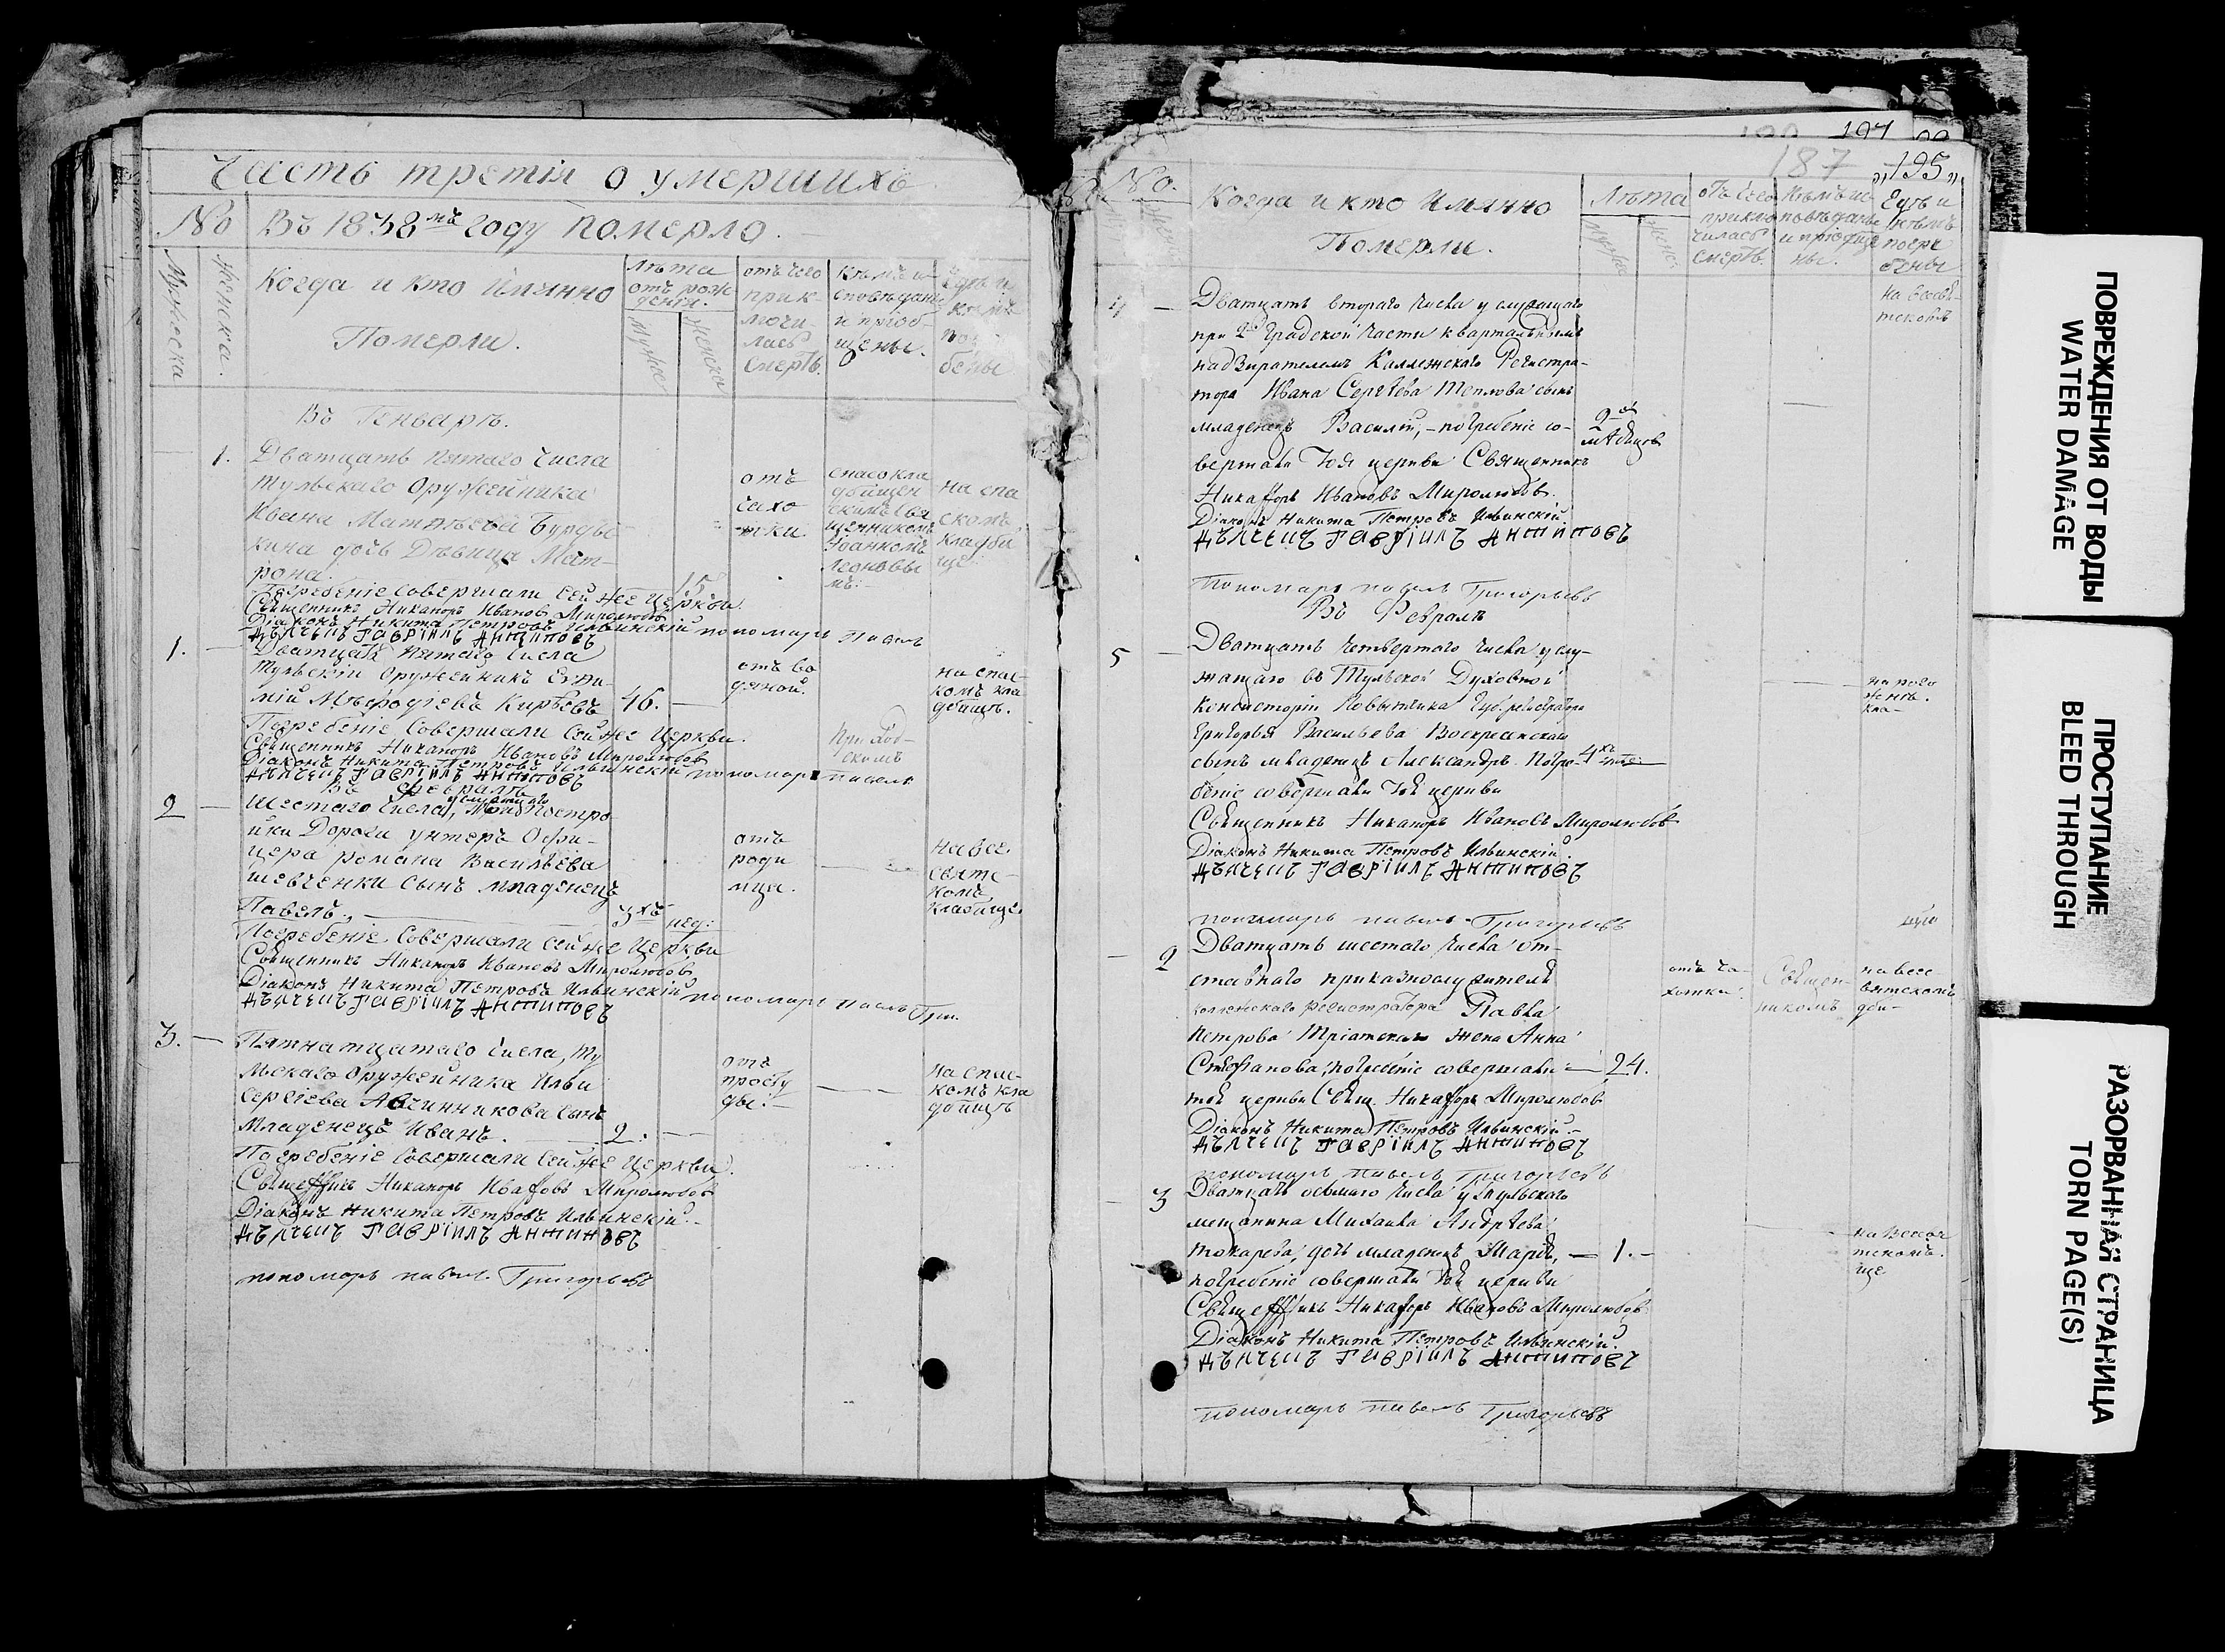 Часть третія о умершихъ
No Въ 1838мъ году померло.
Мужеска
Женска.
Когда и кто Имянно
Померли.
Лѣта
отъ рож
денія.
Мужес
Женска
отъ чего
прик-
лючи-
лась
смерть.
Кѣмъ и
споведаны
и пріоб-
щены.
Гдѣ и
кѣмъ
бены
Въ Генварѣ.
1. Дватцать пятаго числа
Тульскаго Оружейника
Ивана Матвѣева
кина дочь Дѣвица Мат-
рона.
15
отъ
чахо
тки.
на спа
скомъ
кладби
ще.
Погребеніе Совершали Сей же Церкви.
Священникъ Никаноръ Ивановъ Миролюбовъ
Діаконъ Никита Петровъ Ильинскій пономарь Павелъ
Дьячецъ Гавріилъ Антиповъ
1. — Дватцать Пятаго числа
Тульскій Оружейникъ
мій Мѣфодіевъ Кирѣевъ 46. —
отъ во
дяной.
на спас-
комъ кла
дбищѣ.
Погребеніе Совершали Сей же Церкви.
Священникъ Никаноръ Ивановъ Миролюбовъ
Діаконъ Никита Петровъ Ильинскій пономарь Павелъ
Дьячецъ Гавріилъ Антиповъ
Приход-
скомъ
Въ Февралѣ
2 — Шестаго числа,
йки Дороги унтеръ Офи-
цера романа Васильева
шевченки сынъ младенецъ
Павелъ. — 3хъ нед:
отъ
роди
мца.
на все
свят-
комъ
кладбище
Погребеніе Совершали Сей же Церкви
Священникъ Никаноръ Ивановъ Миролюбовъ
Діаконъ Никита Петровъ Ильинскій пономарь Павелъ Григ.
Дьячецъ Гавріилъ Антиповъ
3. — Пятнатцатаго числа, Ту
льскаго Оружейника Ильи
Сергіева Авчинникова сынъ
Младенецъ Иванъ. 2. —
отъ
просту
ды. —
на спас-
комъ кла
дбищѣ
Погребеніе Совершали Сей же Церкви.
Священникъ Никаноръ Ивановъ Миролюбовъ
Діаконъ Никита Петровъ Ильинскій. -
Дьячецъ Гавріилъ Антиповъ
пономарь павелъ Григорьевъ
187 „195„
No.
Когда и кто Имянно
Померли.
Лѣта
отъ чего
приклю
чилась
смерть.
Кѣмъ ис
повѣданы
и пріобще
ны.
Гдѣ и
кѣмъ
погре
бены
4 — Дватцать втораго числа у служащаго
при 2й Градской части квартальнымъ
надзирателемъ Коллежскаго Регистра-
тора Ивана Сергѣева Теплова сынъ
младенецъ Василій, — погребеніе со-
вершали Тоя церкви Священникъ
Никаноръ Ивановъ Миролюбовъ.
Діаконъ Никита Петровъ Ильинскій.
Дьячецъ Гавріилъ Антиповъ
Пономарь павелъ Григорьевъ
2хъ
мѣсяцов
Въ Февралѣ
5 — Дватцать четвертаго числа у слу-
жащаго въ Тульской Духовной
консисторіи Повытчика Губ. регистратора
Григорья Васильева Воскресенскаго
сынъ младенецъ Александръ. Погре- 4хъ
беніе совершали Той церкви
Священникъ Никаноръ Ивановъ Миролюбовъ
Діаконъ Никита Петровъ Ильинскій.
Дьячецъ Гавріилъ Антиповъ
пономарь павелъ Григорьевъ
— 2 Дватцать шестаго числа От-
ставнаго приказнослужителя
коллежскаго регистратора Павла
Петрова жена Анна
Стефанова, погребеніе совершали — 24.
той церкви Свящ. Никаноръ Миролюбовъ
Діаконъ Никита Петровъ Ильинскій. -
Дьячецъ Гавріилъ Антиповъ
пономарь павелъ Григорьевъ
отъ ча-
хотки.
Священ-
никомъ
на все
святскомъ
— 3 Дватцать осьмаго числа у тульскаго
мещанина Михаила Андрѣева
токарева, дочь младенецъ Марія, — 1. -
погребеніе совершали Той церкви
Священникъ Никаноръ Ивановъ Миролюбовъ
Діаконъ Никита Петровъ Ильинскій.
Дьячецъ Гавріилъ Антиповъ
пономарь павелъ Григорьевъ
ПОВРЕЖДЕНИЯ ОТ ВОДЫ
WATER DAMAGE
ПРОСТУПАНИЕ
BLEED THROUGH
РАЗОРВАННАЯ СТРАНИЦА
TORN PAGE(S)